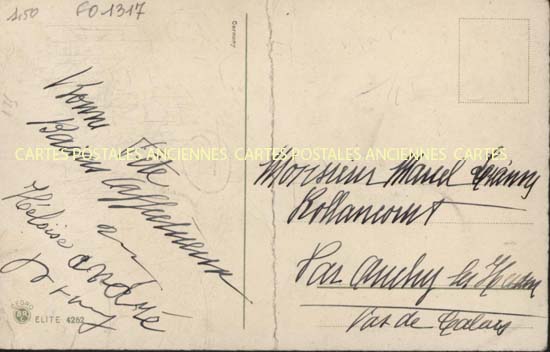 1.50 FO1317
Germany
Bonne Fête
Baisers affectueux
Héloïse André
CARTES POSTALES ANCIENNES CARTES POSTALES ANCIENNES CARTES
Monsieur Marcel
Rollancourt
Par Auchy les Hesdin
Pas de Calais
PEDRO
ELITE 4262